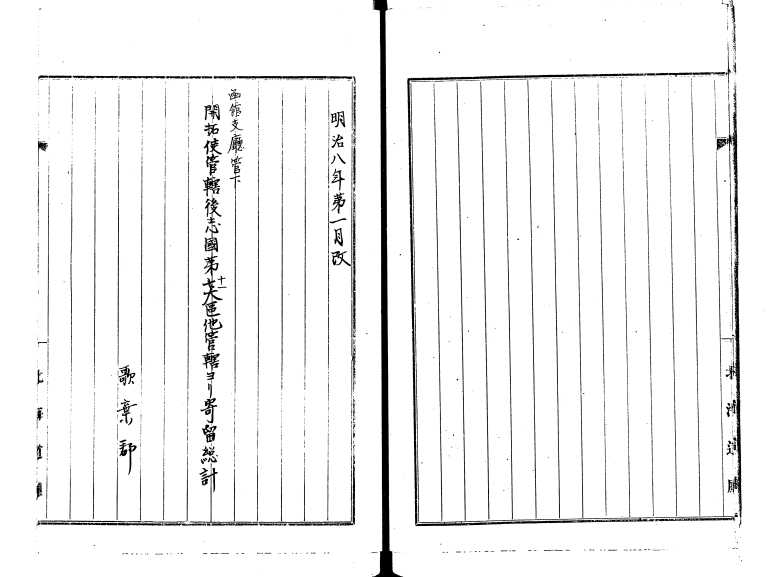 明治八年第一月改
函館支廳管下
開拓使管轄後志國第十一大區他管轄ヨリ寄留総計
歌棄郡
北海道廳